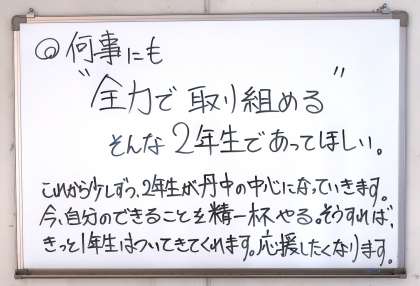 ◎何事にも
"全力で取り組める"
そんな2年生であってほしい。
これから少しずつ、2年生が丹中の中心になっていきます。
今、自分のできることを精一杯やる。そうすれば、
きっと1年生はついてきてくれます。応援したくなります。